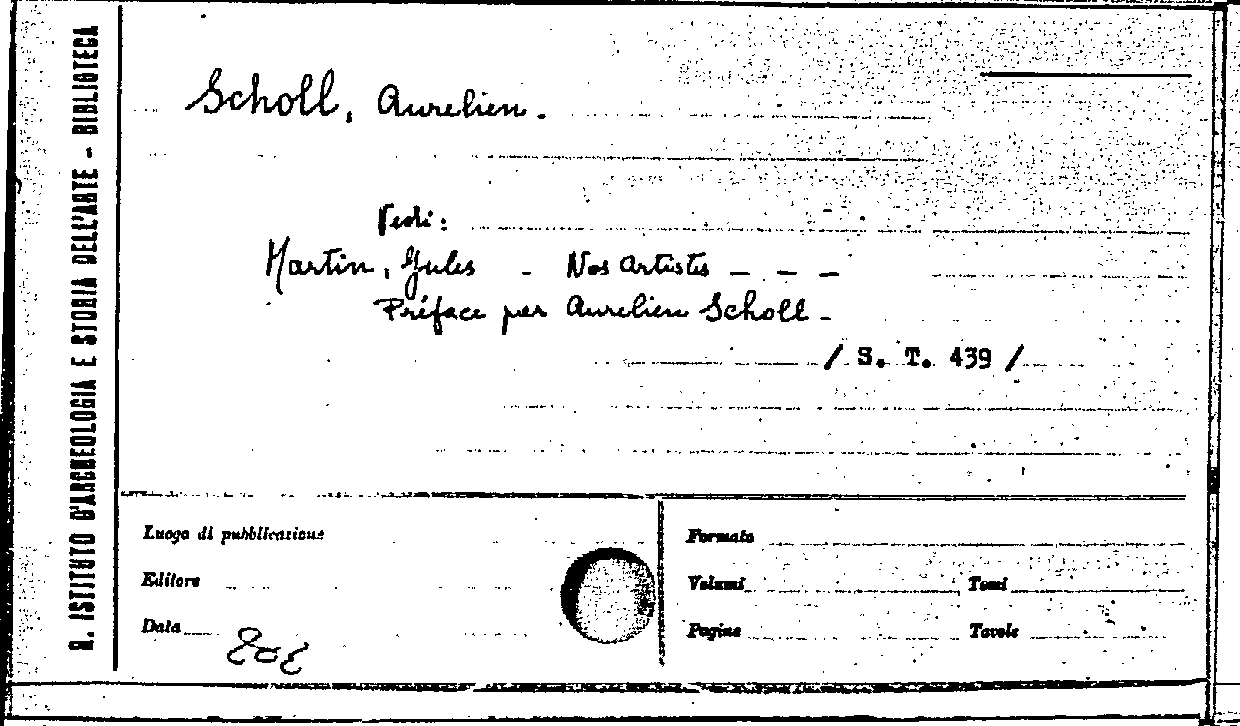 R. ISTITUTO D'ARCHEOLOGIA E STORIA DELL'ARTE - BIBLIOTECA
Scholl, Aurelien.
Vedi:
Martin, Jules - Nos Artistes - - -
Préface par Aurelien Scholl -
/ S. T. 439 /
Luogo di pubblicazione
Editore
Data
Formato
Volumi
Tomi
Pagine
Tavole